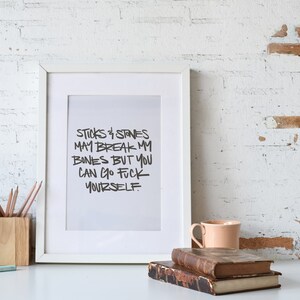 STICKS & STONES
MAY BREAK MY
BONES BUT YOU
CAN GO FUCK
YOURSELF.